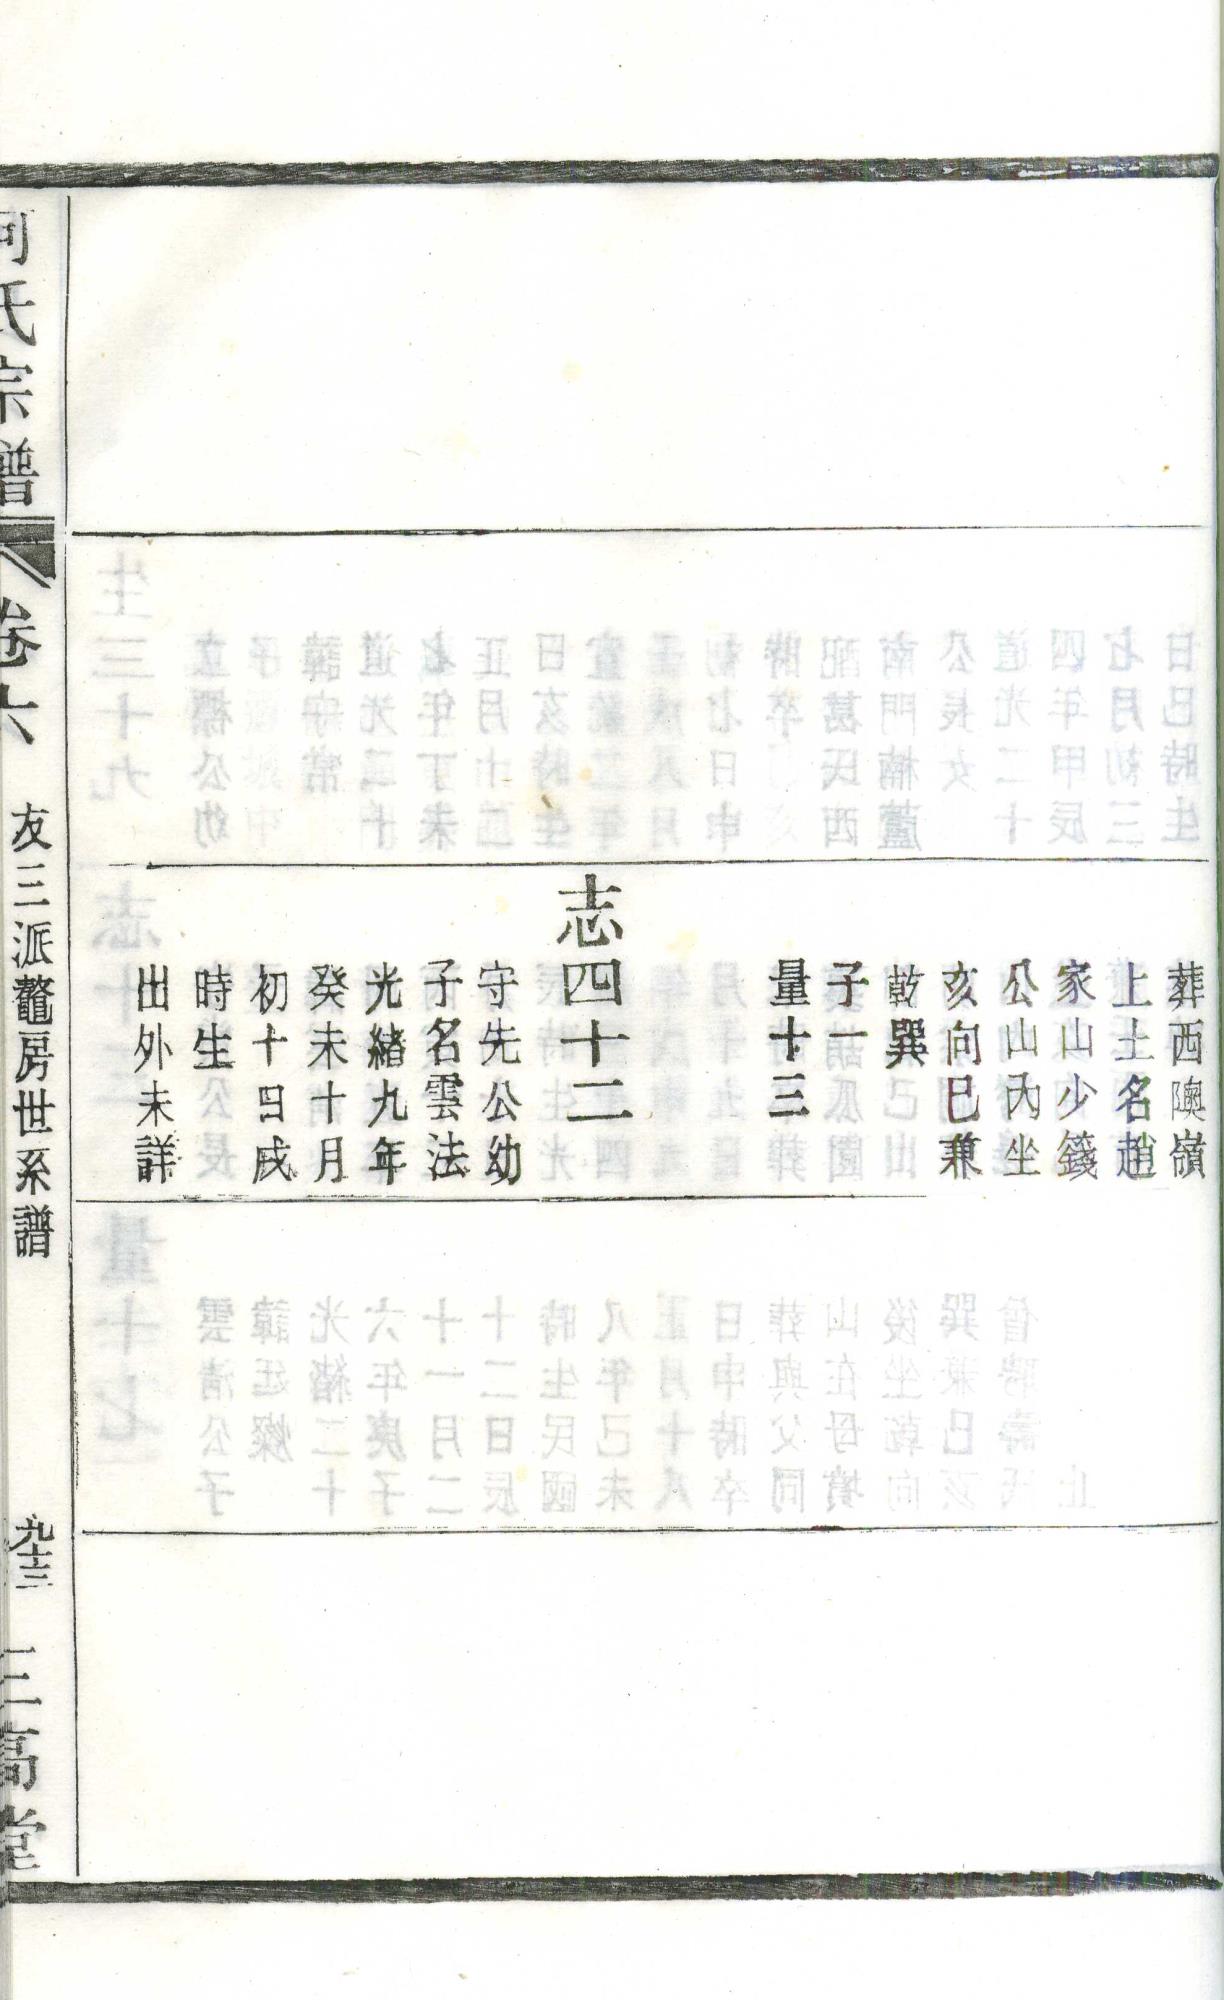 葬西隩嶺
上土名趙
家山少籛
公山內坐
亥向巳兼
乾巽
子一
量十三
志四十二
守先公幼
子名雲法
光緒九年
癸未十月
初十日戌
時生
出外未詳
何氏宗譜
卷六
友三派鼇房世系譜
九十三
三高堂